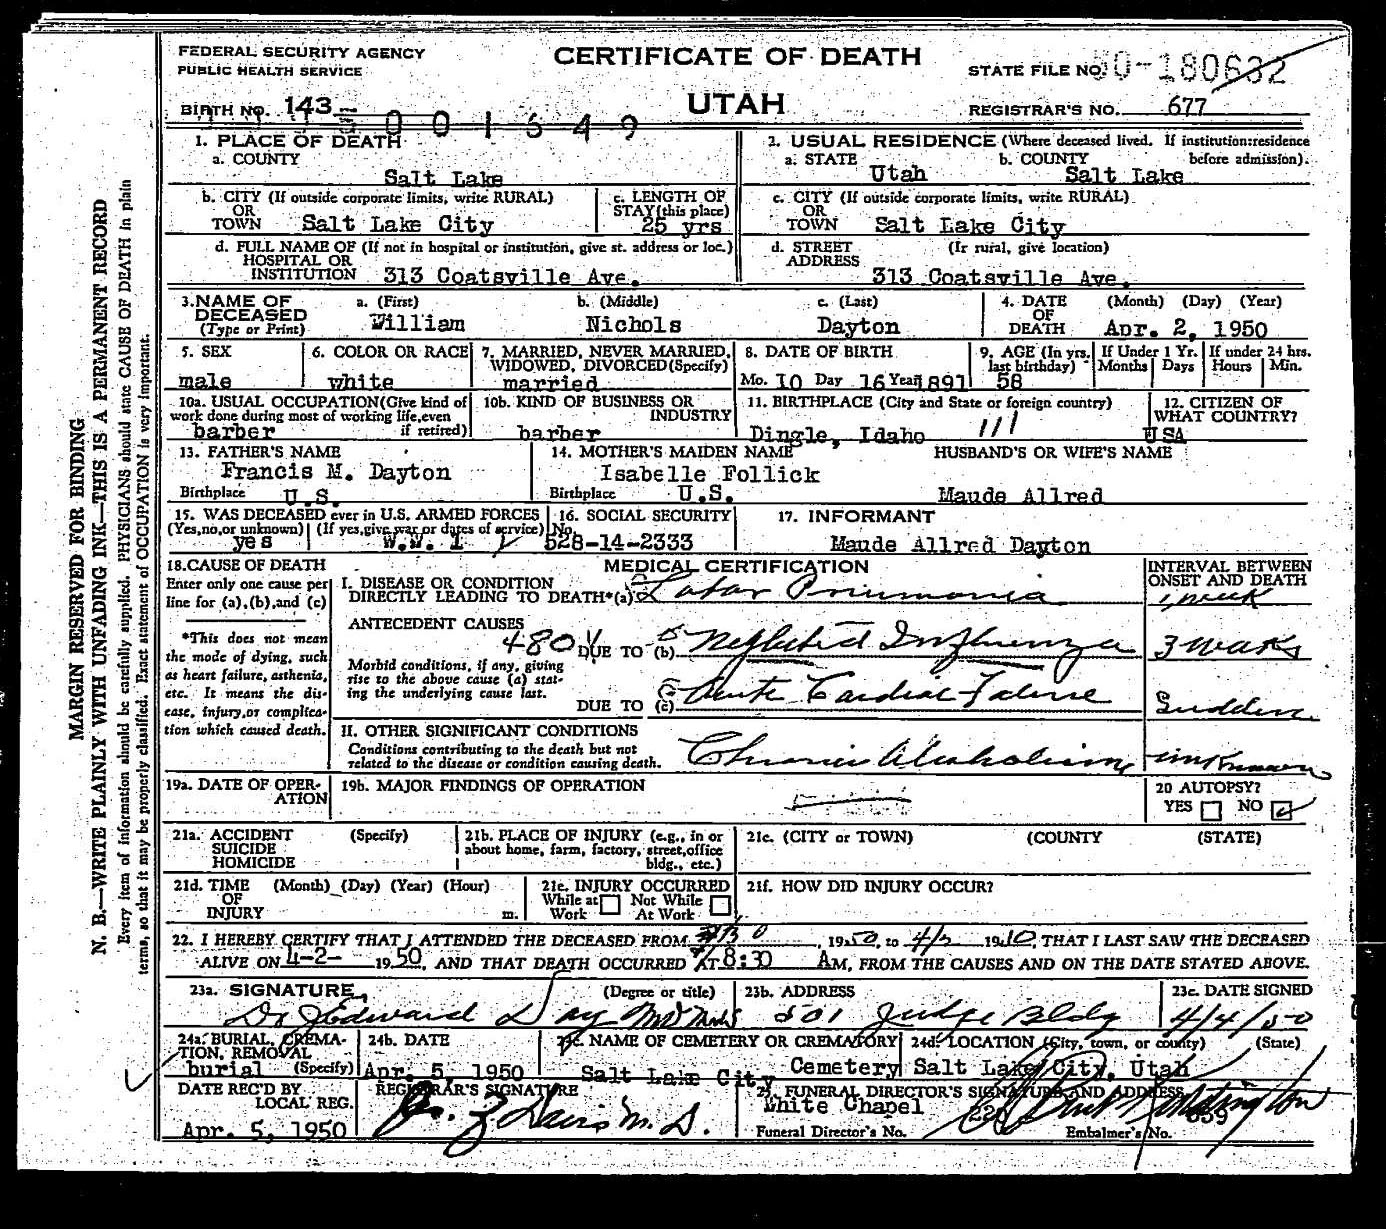 FEDERAL SECURITY AGENCY
PUBLIC HEALTH SERVICE
CERTIFICATE OF DEATH
UTAH
STATE FILE NO. 50-180632
BIRTH NO. 143
5 0 0 1 6 4 9
REGISTRAR'S NO. 677
MARGIN RESERVED FOR BINDING
N. B.—WRITE PLAINLY WITH UNFADING INK—THIS IS A PERMANENT RECORD
Every item of information should be carefully supplied. PHYSICIANS should state CAUSE OF DEATH in plain
terms, so that it may be properly classified. Exact statement of OCCUPATION is very important.
1. PLACE OF DEATH
a. COUNTY
Salt Lake
2. USUAL RESIDENCE (Where deceased lived. If institution:residence
a. STATE b. COUNTY before admission).
Utah Salt Lake
b. CITY (If outside corporate limits, write RURAL)
OR
TOWN Salt Lake City
c. LENGTH OF
STAY(this place)
25 yrs
c. CITY (If outside corporate limits, write RURAL)
OR
TOWN Salt Lake City
d. FULL NAME OF (If not in hospital or institution, give st. address or loc.)
HOSPITAL OR
INSTITUTION 313 Coatsville Ave.
d. STREET (If rural, give location)
ADDRESS
313 Coatsville Ave.
3.NAME OF
DECEASED
(Type or Print)
a. (First) b. (Middle) c. (Last)
William Nichols Dayton
4. DATE (Month) (Day) (Year)
OF
DEATH Apr. 2, 1950
5. SEX
male
6. COLOR OR RACE
white
7. MARRIED, NEVER MARRIED,
WIDOWED, DIVORCED(Specify)
married
8. DATE OF BIRTH
Mo. 10 Day 16 Year 1891
9. AGE (In yrs.
last birthday)
58
If Under 1 Yr.
Months Days
If under 24 hrs.
Hours Min.
10a. USUAL OCCUPATION(Give kind of
work done during most of working life,even
barber if retired)
10b. KIND OF BUSINESS OR
INDUSTRY
barber
11. BIRTHPLACE (City and State or foreign country)
Dingle, Idaho 111
12. CITIZEN OF
WHAT COUNTRY?
USA
13. FATHER'S NAME
Francis M. Dayton
Birthplace U.S.
14. MOTHER'S MAIDEN NAME
Isabelle Follick
Birthplace U.S.
HUSBAND'S OR WIFE'S NAME
Maude Allred
15. WAS DECEASED ever in U.S. ARMED FORCES
(Yes,no,or unknown) (If yes,give war or dates of service)
yes W.W. I
16. SOCIAL SECURITY
No.
528-14-2333
17. INFORMANT
Maude Allred Dayton
18.CAUSE OF DEATH
Enter only one cause per
line for (a),(b),and (c)
*This does not mean
the mode of dying, such
as heart failure, asthenia,
etc. It means the dis-
ease, injury,or complica-
tion which caused death.
MEDICAL CERTIFICATION
INTERVAL BETWEEN
ONSET AND DEATH
I. DISEASE OR CONDITION
DIRECTLY LEADING TO DEATH*(a) Lobar Pneumonia 1 week
ANTECEDENT CAUSES
480
DUE TO (b) Neglected Influenza 3 weeks
Morbid conditions, if any, giving
rise to the above cause (a) stat-
ing the underlying cause last.
DUE TO (c) Acute Cardiac Failure Sudden
II. OTHER SIGNIFICANT CONDITIONS
Conditions contributing to the death but not
related to the disease or condition causing death.
Chronic Alcoholism unknown
19a. DATE OF OPER-
ATION
19b. MAJOR FINDINGS OF OPERATION
20 AUTOPSY?
YES NO
21a. ACCIDENT (Specify)
SUICIDE
HOMICIDE
21b. PLACE OF INJURY (e.g., in or
about home, farm, factory, street,office
bldg., etc.)
21c. (CITY or TOWN) (COUNTY) (STATE)
21d. TIME (Month) (Day) (Year) (Hour)
OF
INJURY m.
21e. INJURY OCCURRED
While at Not While
Work At Work
21f. HOW DID INJURY OCCUR?
22. I HEREBY CERTIFY THAT I ATTENDED THE DECEASED FROM , 1950, to 4/2 19 , THAT I LAST SAW THE DECEASED
ALIVE ON 4-2- 1950, AND THAT DEATH OCCURRED AT 8:30 AM, FROM THE CAUSES AND ON THE DATE STATED ABOVE.
23a. SIGNATURE (Degree or title)
Dr J Edward Day MD
23b. ADDRESS
501 Judge Bldg
23c. DATE SIGNED
4/4/50
24a. BURIAL, CREMA-
TION, REMOVAL
burial (Specify)
24b. DATE
Apr. 5, 1950
24c. NAME OF CEMETERY OR CREMATORY
Salt Lake City Cemetery
24d. LOCATION (City, town, or county) (State)
Salt Lake City, Utah
DATE REC'D BY
LOCAL REG.
Apr. 5, 1950
REGISTRAR'S SIGNATURE
M. D.
25. FUNERAL DIRECTOR'S SIGNATURE AND ADDRESS
White Chapel
Funeral Director's No. 220
Embalmer's No. 639